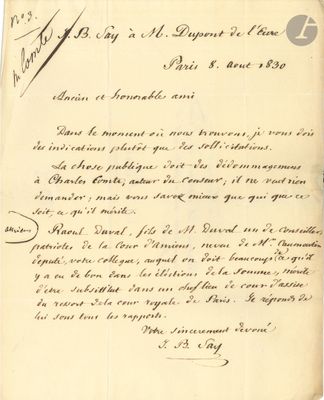 No. 3.
M. Comte
J. B. Say à M. Dupont de l'Eure
Paris 8. Aout 1830
Ancien et honorable ami
Dans le moment où nous trouvons, je vous dois
des indications plutôt que des sollicitations.
La chose publique doit des dédommagemens
à Charles Comte, auteur du Censeur; il ne veut rien
demander; mais vous savez mieux que qui que ce
soit, ce qu'il mérite.
Raoul Duval, fils de M. Duval un de conseillers
patriotes de la Cour d'Amiens, neveu de Mr. Caumartin
deputé, votre collègue, auquel on doit beaucoup de ce qu'il
y a eu de bon dans les élections de la Somme, mérite
d'être substitut dans un chef lieu de cour d'assise
du ressort de la cour royale de Paris. Je réponds de
lui sous tous les rapports.
Votre sincerement devoué
J. B. Say